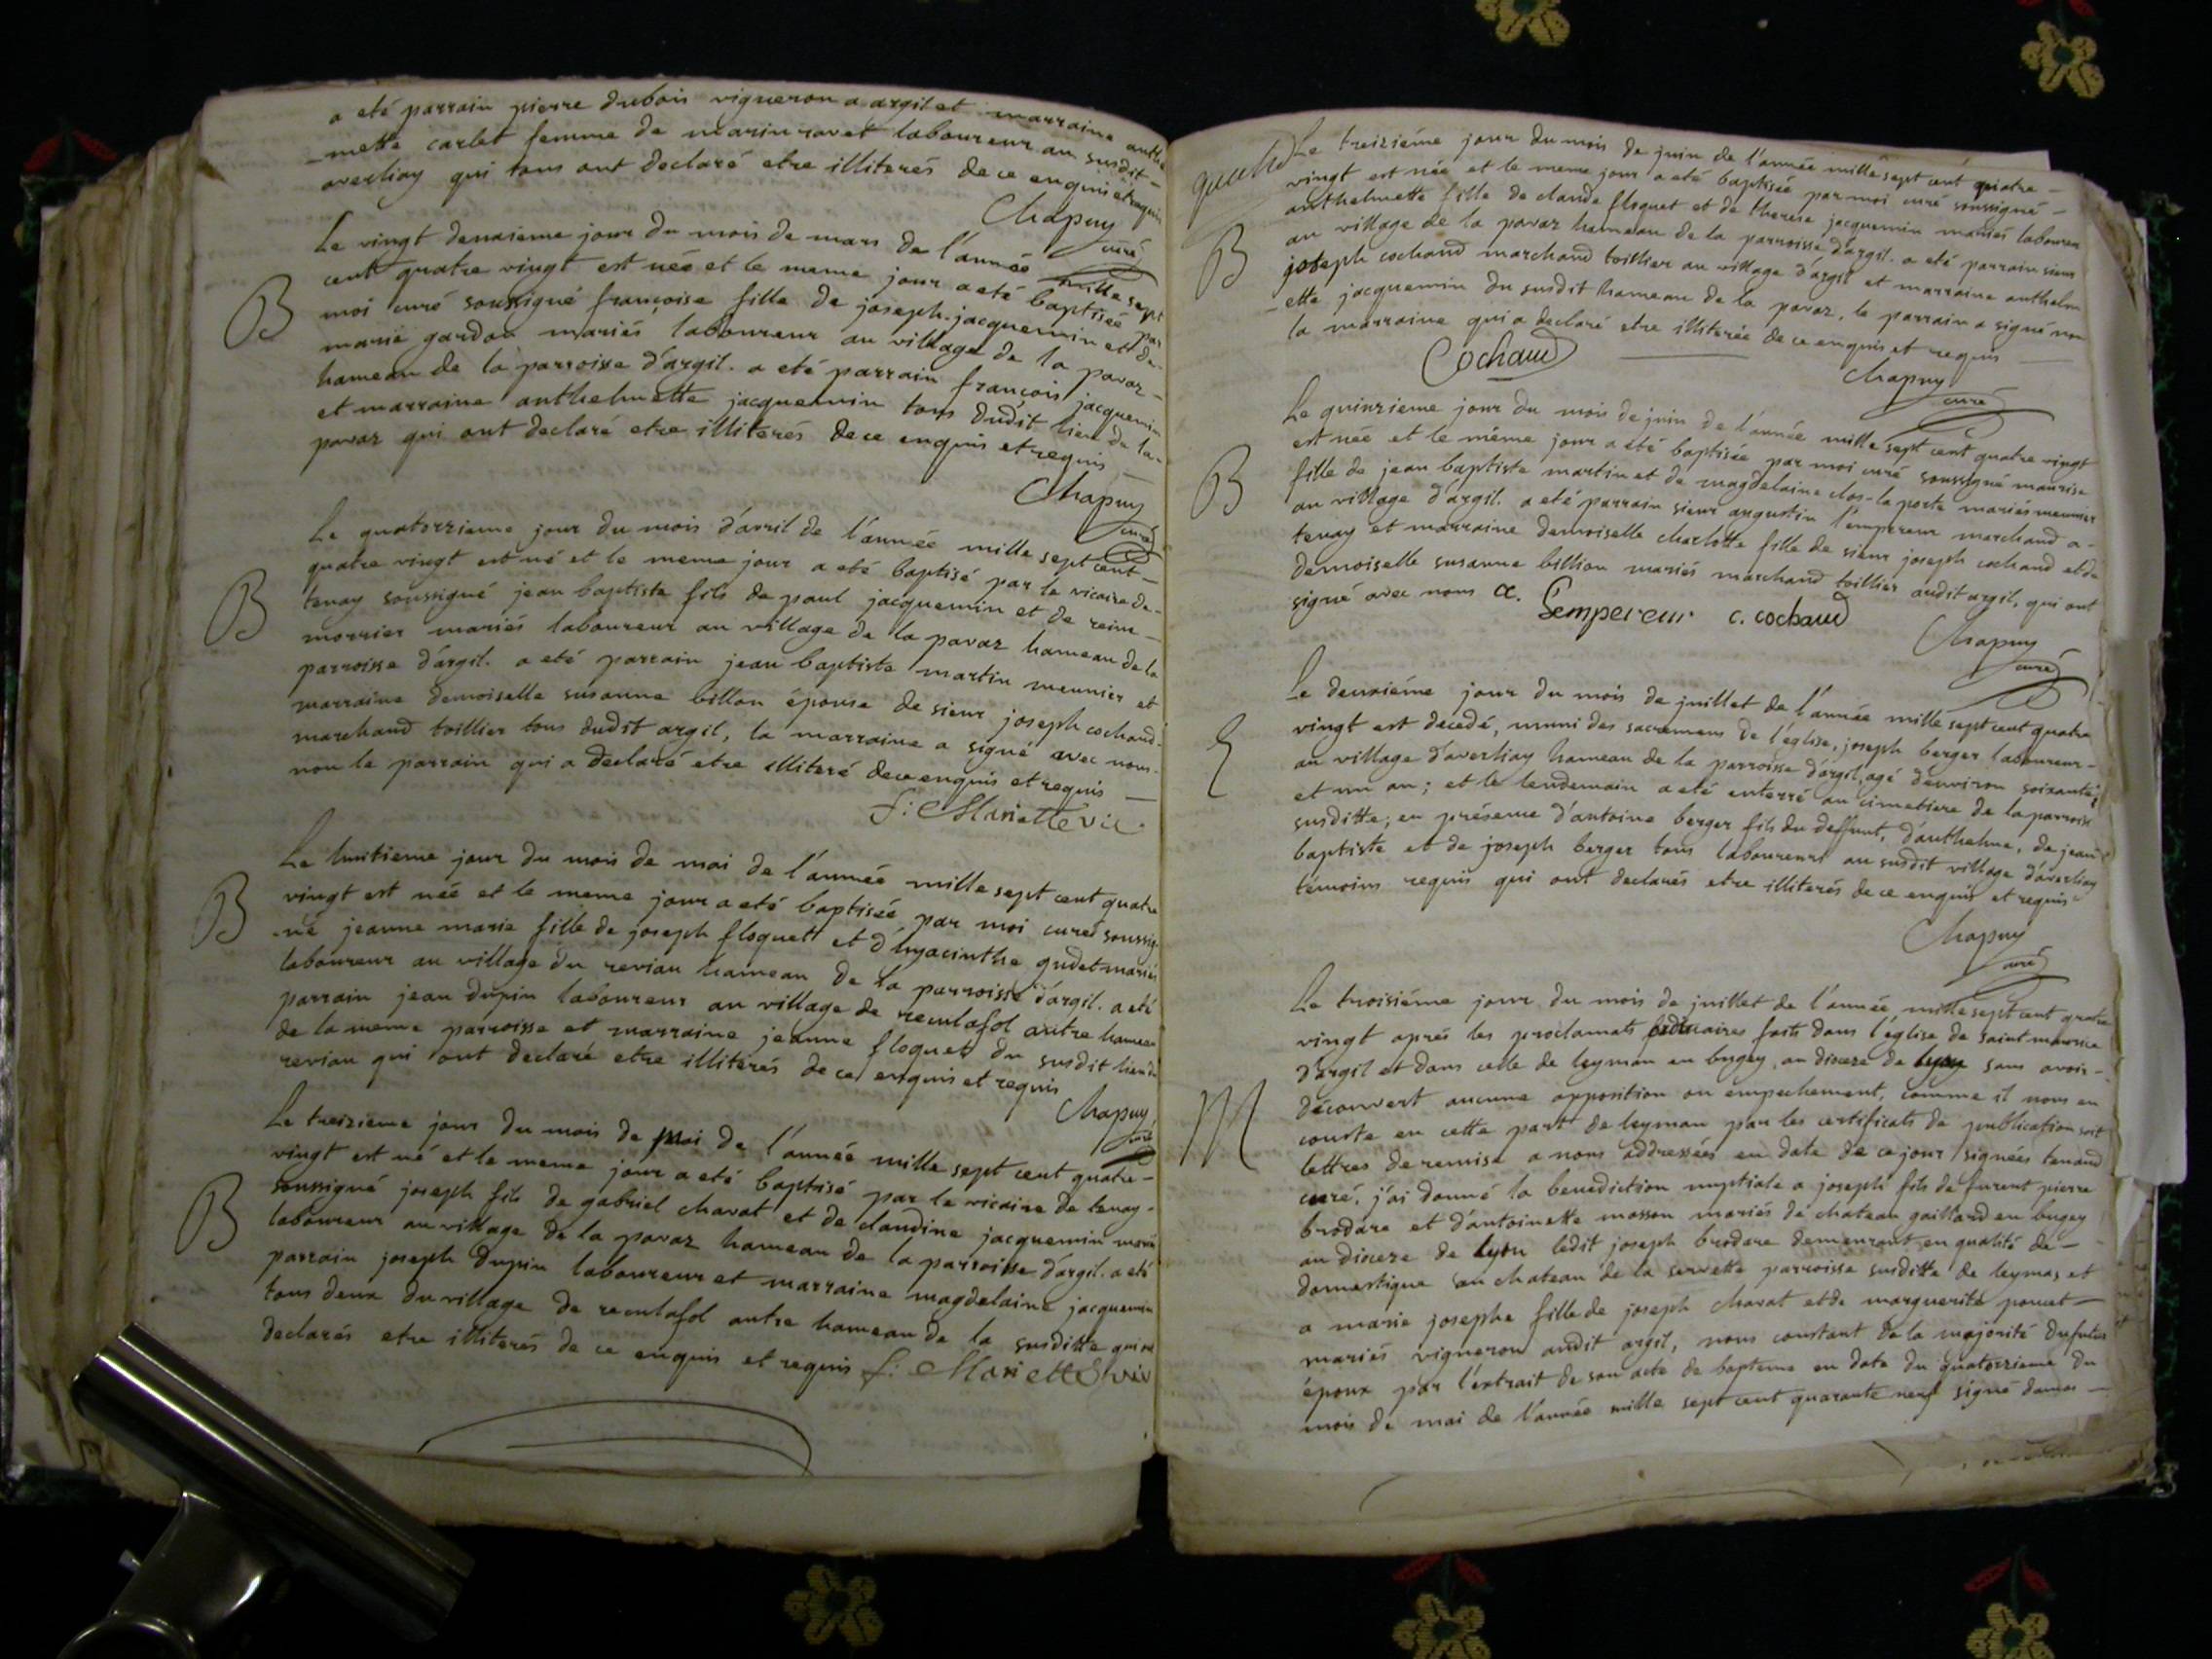 a eté parrain pierre dubois vigneron a argil et marraine anthe
-mette carlet femme de marin ravet laboureur au susdit-
averliay qui tous ont declaré etre illiterés de ce enquis et requis
Chapuy
curé
Le vingt deuxieme jour du mois de mars de l'année mille sept
cent quatre vingt est née et le meme jour a eté baptisée par
B
moi curé soussigné françoise fille de joseph jacquemin et de-
marie gardon mariés laboureur au village de la pavaz-
hameau de la parroisse d'argil. a eté parrain françois jacquemin
et marraine anthelmette jacquemin tous dudit lieu de la-
pavaz qui ont declaré etre illiterés de ce enquis et requis
Chapuy
curé
Le quatorzieme jour du mois d'avril de l'année mille sept cent-
quatre vingt est né et le meme jour a eté baptisé par le vicaire de-
B
tenay soussigné jean baptiste fils de paul jacquemin et de reine-
morrier mariés laboureur au village de la pavaz hameau de la
parroisse d'argil. a eté parrain jean baptiste martin meunier et
marraine demoiselle susanne billon épouse de sieur joseph cochand-
marchand toillier tous dudit argil, la marraine a signé avec nous-
non le parrain qui a declaré etre illiteré de ce enquis et requis
f: Mariette vic
Le huitieme jour du mois de mai de l'année mille sept cent quatre
vingt est née et le meme jour a eté baptisée par moi curé soussig-
B
-né jeanne marie fille de joseph floquet et d'hyacinthe gudet mariés
laboureur au village du revian hameau de la parroisse d'argil. a eté
parrain jean dupin laboureur au village de reculafol autre hameau
de la meme parroisse et marraine jeanne floquet du susdit lieu du
revian qui ont declaré etre illiterés de ce enquis et requis
Chapuy
curé
Le treizieme jour du mois de mai de l'année mille sept cent quatre-
vingt est né et le meme jour a eté baptisé par le vicaire de tenay-
B
soussigné joseph fils de gabriel chavat et de claudine jacquemin mariés
laboureur au village de la pavaz hameau de la parroisse d'argil. a eté
parrain joseph dupin laboureur et marraine magdelaine jacquemin
tous deux du village de reculafol autre hameau de la susditte qui ont
declarés etre illiterés de ce enquis et requis f: Mariette vic
Le treizième jour du mois de juin de l'année mille sept cent quatre-
vingt est née et le meme jour a eté baptisée par moi curé soussigné-
anthelmette fille de claude floquet et de therese jacquemin mariés laboureur
B
au village de la pavaz hameau de la parroisse d'argil. a eté parrain sieur
joseph cochand marchand toillier au village d'argil et marraine anthelm
-ette jacquemin du susdit hameau de la pavaz, le parrain a signé non
la marraine qui a declaré etre illiterée de ce enquis et requis
Cochaud
Chapuy
curé
Le quinzieme jour du mois de juin de l'année mille sept cent quatre vingt
est née et le même jour a été baptisée par moi curé soussigné maurise
B
fille de jean baptiste martin et de magdelaine clos-la porte mariés meunier
au village d'argil. a eté parrain sieur augustin l'empereur marchand a-
tenay et marraine demoiselle charlotte fille de sieur joseph cochand et de
demoiselle susanne billion mariés marchand toillier audit argil, qui ont
signé avec nous
Lempereur c. cochaud
Chapuy
curé
Le deuxième jour du mois de juillet de l'année mille sept cent quatre
vingt est decedé, muni des sacremens de l'église, joseph berger laboureur-
au village d'averliay hameau de la parroisse d'argil, agé d'environ soixante
et un an; et le lendemain a eté enterré au cimetiere de la parroisse
susditte; en présence d'antoine berger fils du deffunt, d'anthelme, de jean
baptiste et de joseph berger tous laboureurs au susdit village d'averliay
témoins requis qui ont declarés etre illiterés de ce enquis et requis
Chapuy
curé
Le troisième jour du mois de juillet de l'année mille sept cent quatre
vingt aprés les proclamats faits dans l'église de saint maurice
d'argil et dans celle de leyman en bugey, au diocese de lyon sans avoir-
M
découvert aucune opposition ou empechement, comme il nous en
conste en cette part de leyman par les certificats de publication soit
lettres de remise a nous addressées en date de ce jour signées tenand
curé, j'ai donné la benediction nuptiale a joseph fils de furent pierre
brodare et d'antoinette masson mariés de chateau gaillard en bugey
au diocese de lyon ledit joseph brodare demeurant en qualité de-
domestique au chateau de la servette parroisse susditte de leymas et
a marie josephe fille de joseph chavat et de marguerite poncet-
mariés vigneron audit argil, nous constant de la majorité du futur
époux par l'extrait de son acte de bapteme en date du quatorzieme du
mois de mai de l'année mille sept cent quarante neuf signé